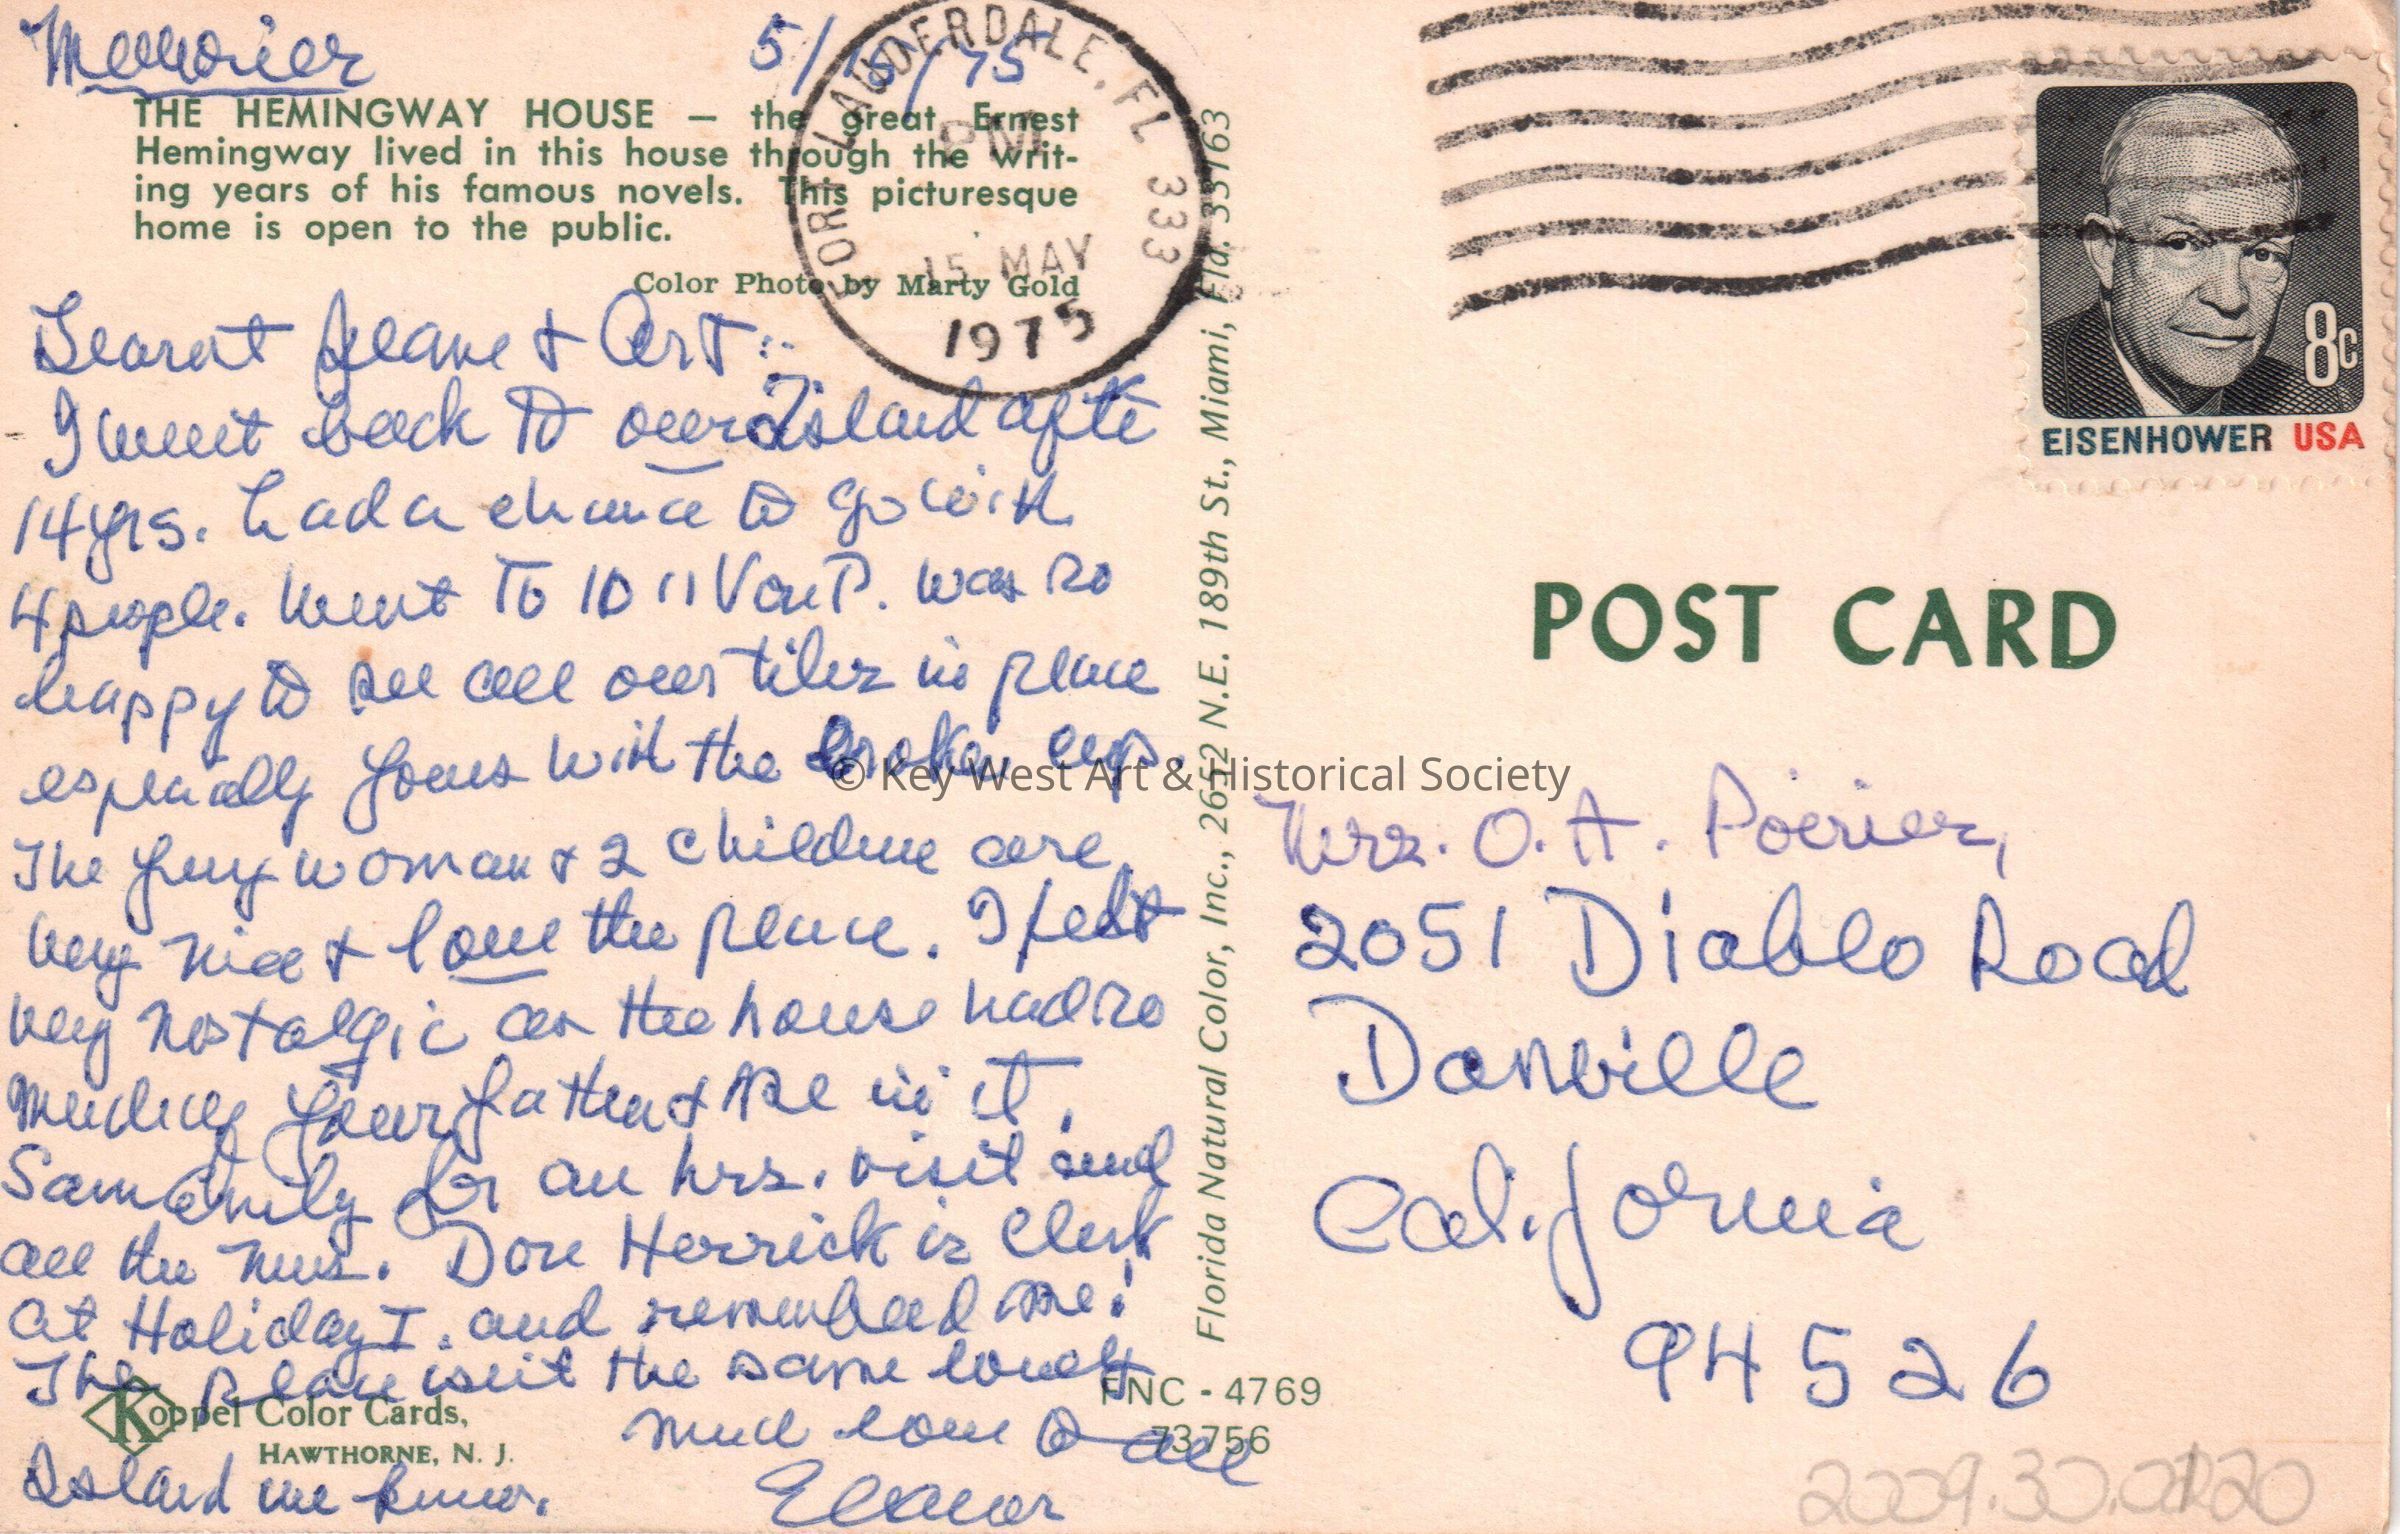 Memories 5/15/75
THE HEMINGWAY HOUSE — the great Ernest
Hemingway lived in this house through the writ-
ing years of his famous novels. This picturesque
home is open to the public.
Color Photo by Marty Gold
FORT LAUDERDALE, FL 333
PM
15 MAY
1975
Dearest Jeane & Art:
I went back to our Island after
14 yrs. had a chance to go with
4 people. Went to 1011 Von P. was so
happy to see all our tiles in place
especially yours with the broken cups.
The young woman & 2 children are
very nice & love the place. I felt
very nostalgic as the house had so
much of your father & me in it.
Saw Emily for an hrs. visit and
all the news. Don Herrick is Clerk
at Holiday I. and remembered me!
The place isn't the same lovely
Island we knew.
much love to all
Eleanor
Koppel Color Cards,
HAWTHORNE, N. J.
FNC - 4769
73756
Florida Natural Color, Inc., 2652 N.E. 189th St., Miami, Fla. 33163
8c
EISENHOWER USA
POST CARD
© Key West Art & Historical Society
Mrs. O. A. Poirier,
2051 Diablo Road
Danville
California
94526
2009.30.0120